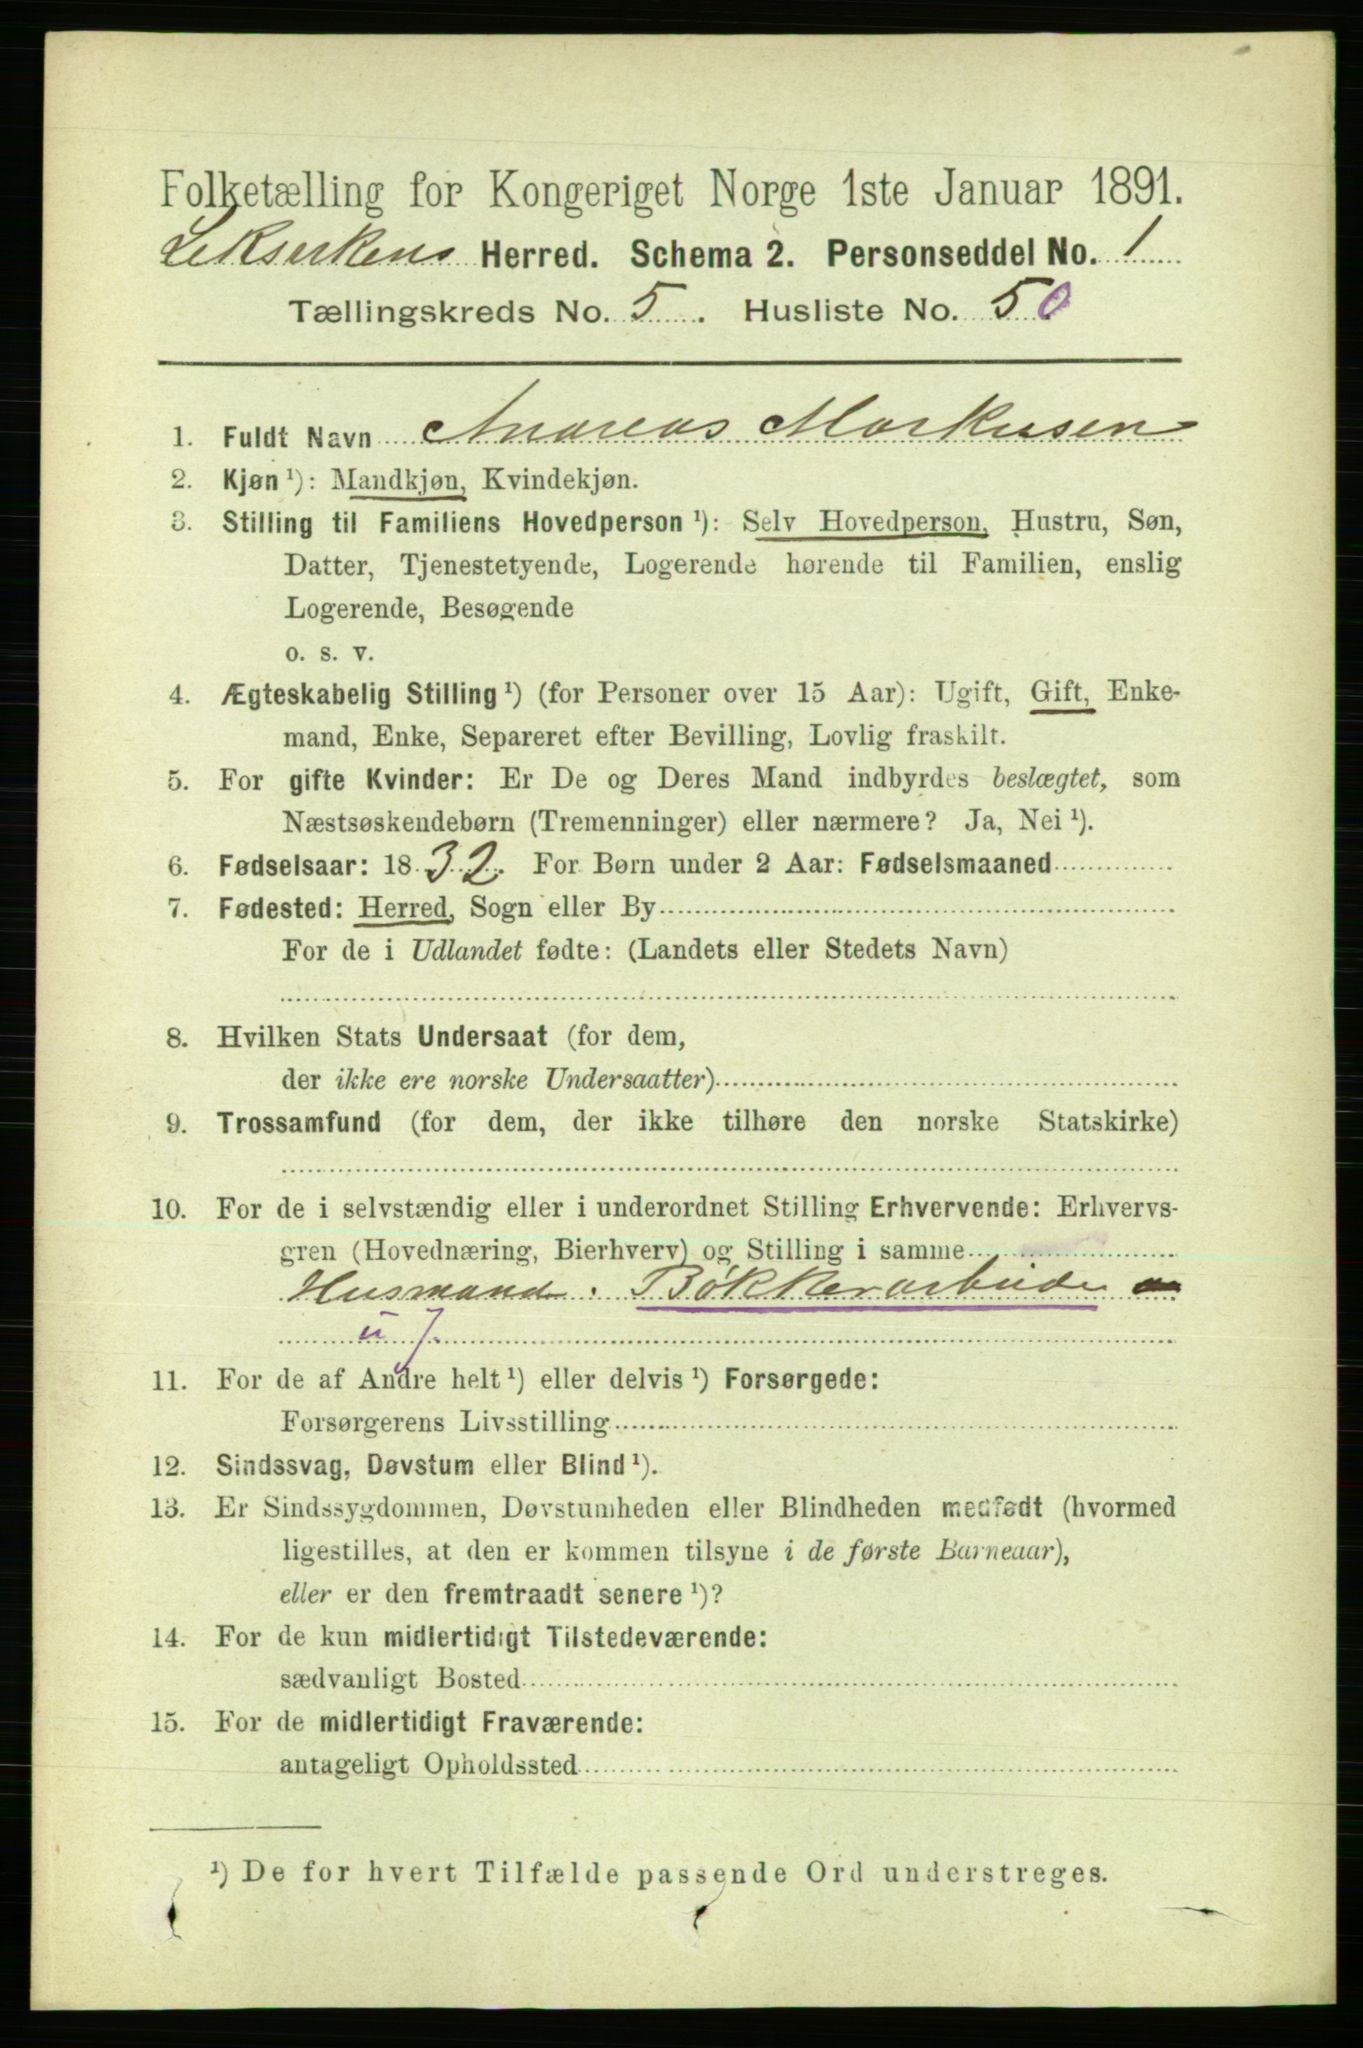 Folketælling for Kongeriget Norge 1ste Januar 1891.
Herred. Schema 2. Personseddel No. 1
Tællingskreds No. 5. Husliste No. 50
1. Fuldt Navn Andreas Markusen
2. Kjøn ¹): Mandkjøn, Kvindekjøn.
3. Stilling til Familiens Hovedperson ¹): Selv Hovedperson, Hustru, Søn,
Datter, Tjenestetyende, Logerende hørende til Familien, enslig
Logerende, Besøgende
o. s. v.
4. Ægteskabelig Stilling ¹) (for Personer over 15 Aar): Ugift, Gift, Enke-
mand, Enke, Separeret efter Bevilling, Lovlig fraskilt.
5. For gifte Kvinder: Er De og Deres Mand indbyrdes beslægtet, som
Næstsøskendebørn (Tremenninger) eller nærmere? Ja, Nei ¹).
6. Fødselsaar: 1832. For Børn under 2 Aar: Fødselsmaaned
7. Fødested: Herred, Sogn eller By
For de i Udlandet fødte: (Landets eller Stedets Navn)
8. Hvilken Stats Undersaat (for dem,
der ikke ere norske Undersaatter)
9. Trossamfund (for dem, der ikke tilhøre den norske Statskirke)
10. For de i selvstændig eller i underordnet Stilling Erhvervende: Erhvervs-
gren (Hovednæring, Bierhverv) og Stilling i samme
Husmand. Bøkkerarbeide
u j.
11. For de af Andre helt ¹) eller delvis ¹) Forsørgede:
Forsørgerens Livsstilling
12. Sindssvag, Døvstum eller Blind ¹).
13. Er Sindssygdommen, Døvstumheden eller Blindheden medfødt (hvormed
ligestilles, at den er kommen tilsyne i de første Barneaar),
eller er den fremtraadt senere ¹)?
14. For de kun midlertidigt Tilstedeværende:
sædvanligt Bosted
15. For de midlertidigt Fraværende:
antageligt Opholdssted
¹) De for hvert Tilfælde passende Ord understreges.